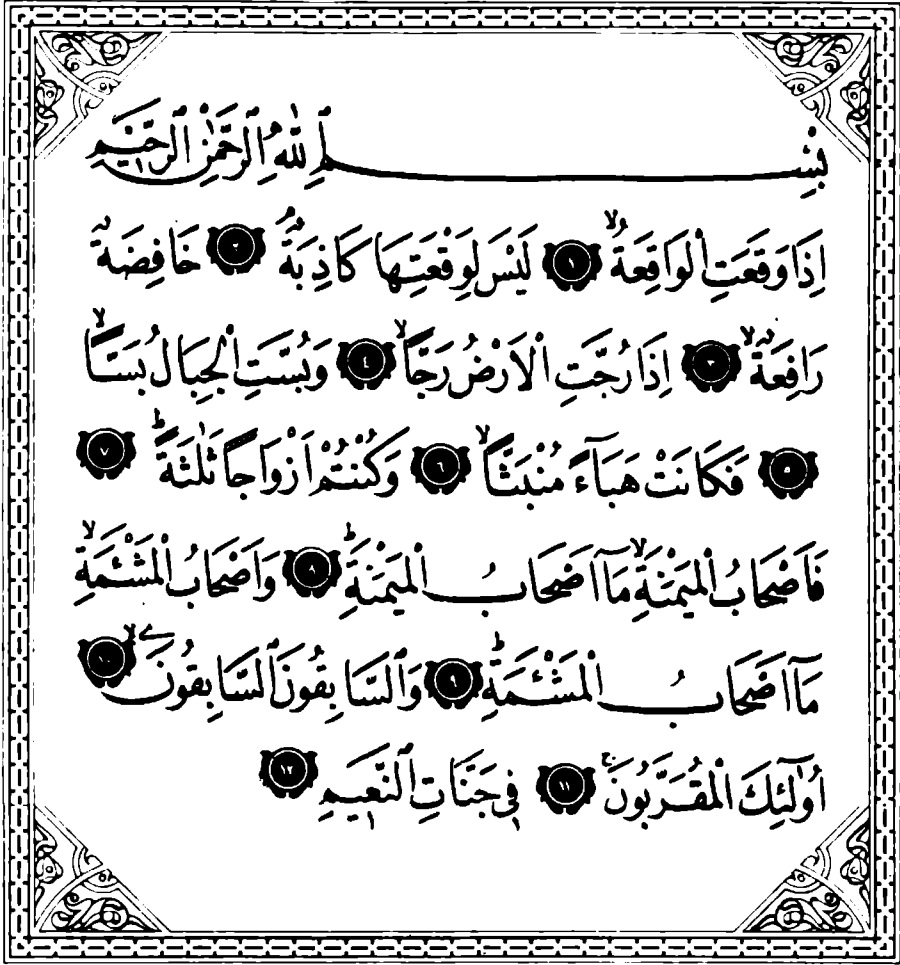 بِسْمِ اللّٰهِ الرَّحْمٰنِ الرَّحِيمِ
اِذَا وَقَعَتِ الْوَاقِعَةُۙ ﴿١﴾ لَيْسَ لِوَقْعَتِهَا كَاذِبَةٌۢ ﴿٢﴾ خَافِضَةٌ
رَافِعَةٌۙ ﴿٣﴾ اِذَا رُجَّتِ الْاَرْضُ رَجًّاۙ ﴿٤﴾ وَبُسَّتِ الْجِبَالُ بَسًّاۙ
﴿٥﴾ فَكَانَتْ هَبَآءً مُنْبَثًّاۙ ﴿٦﴾ وَكُنْتُمْ اَزْوَاجًا ثَلٰثَةًؕ ﴿٧﴾
فَاَصْحَابُ الْمَيْمَنَةِۙ مَآ اَصْحَابُ الْمَيْمَنَةِؕ ﴿٨﴾ وَاَصْحَابُ الْمَشْـَٔمَةِۙ
مَآ اَصْحَابُ الْمَشْـَٔمَةِؕ ﴿٩﴾ وَالسَّابِقُونَ السَّابِقُونَۙ ﴿١٠﴾
اُو۬لٰٓئِكَ الْمُقَرَّبُونَۚ ﴿١١﴾ فِي جَنَّاتِ النَّعِيمِ ﴿١٢﴾